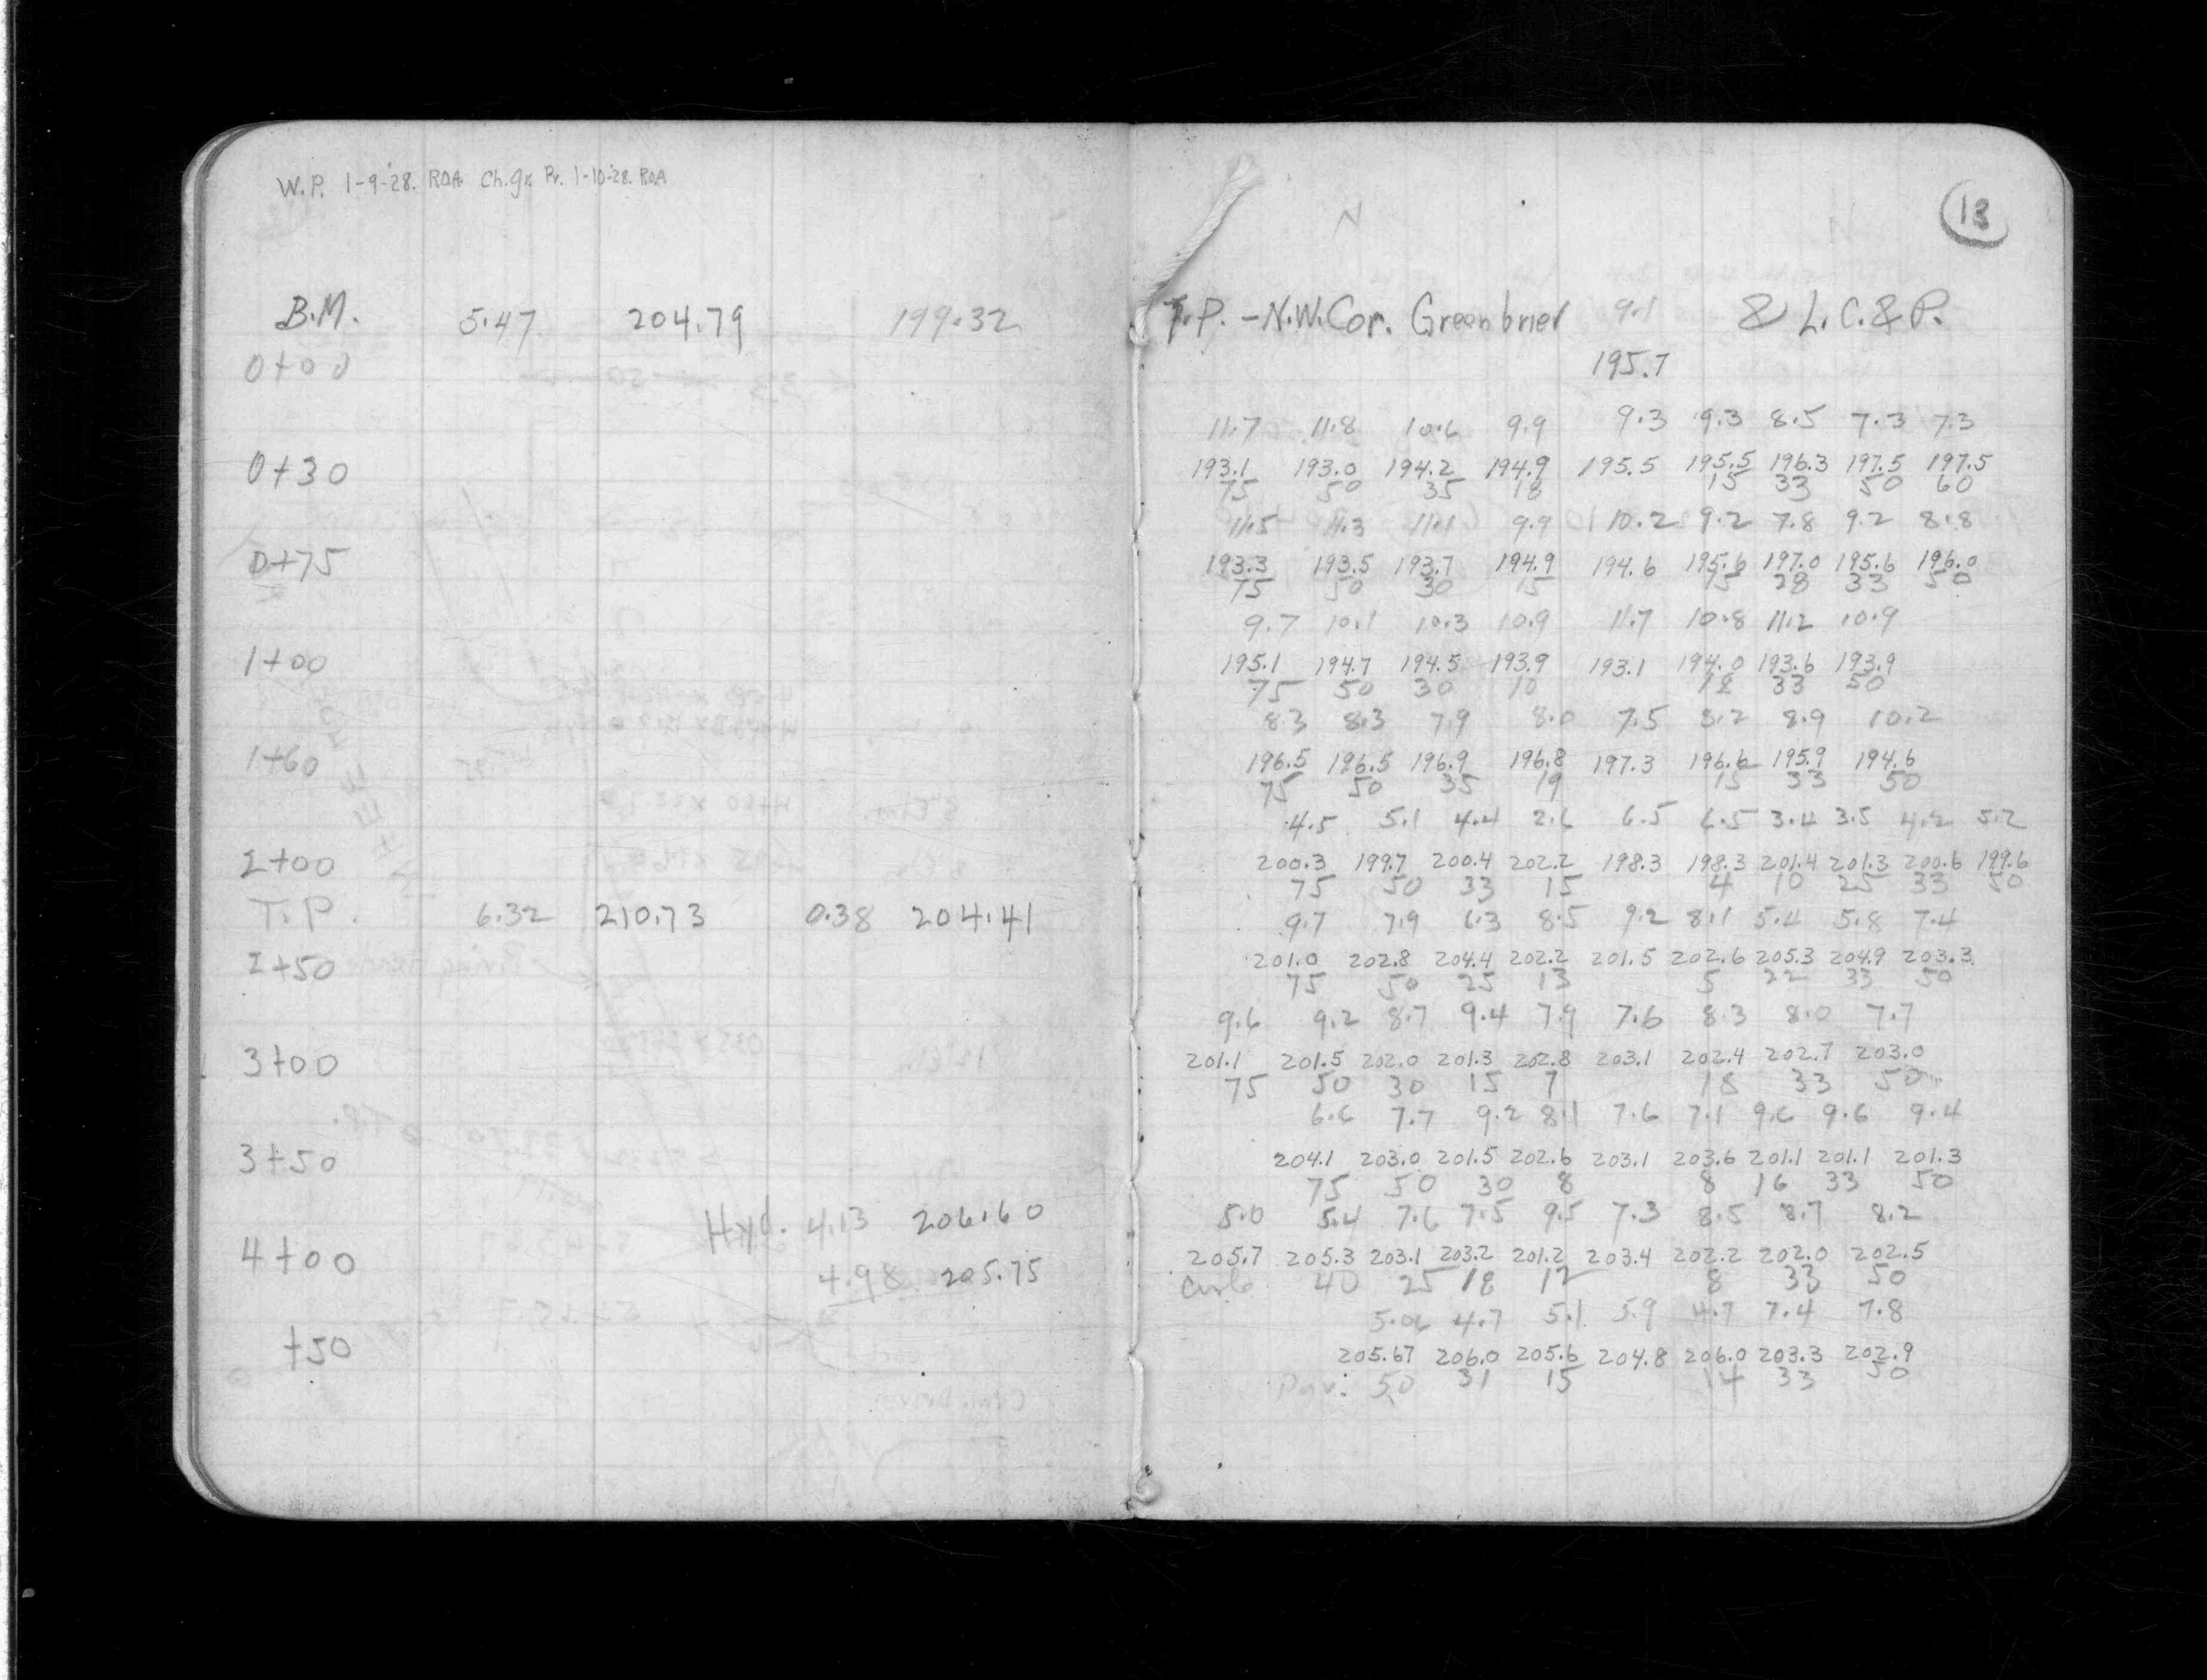 W.P. 1-9-'28. ROA. Ch.gr. Pr. 1-10-'28. ROA
B.M. 5.47 204.79 199.32
0+00
0+30
0+75
1+00
1+60
2+00
T.P. 6.32 210.73 0.38 204.41
2+50
3+00
3+50
Hyd. 4.13 206.60
4+00
4.98 205.75
+50
13
N
T.P. - N.W. Cor. Greenbrier 9.1 & L.C.&P.
195.7
11.7 11.8 10.6 9.9 9.3 9.3 8.5 7.3 7.3
193.1 193.0 194.2 194.9 195.5 195.5 196.3 197.5 197.5
75 50 35 18 15 33 50 60
11.5 11.3 11.1 9.9 10.2 9.2 7.8 9.2 8.8
193.3 193.5 193.7 194.9 194.6 195.6 197.0 195.6 196.0
75 50 30 15 15 28 33 50
9.7 10.1 10.3 10.9 11.7 10.8 11.2 10.9
195.1 194.7 194.5 193.9 193.1 194.0 193.6 193.9
75 50 30 10 18 33 50
8.3 8.3 7.9 8.0 7.5 8.2 8.9 10.2
196.5 196.5 196.9 196.8 197.3 196.6 195.9 194.6
75 50 35 19 15 33 50
4.5 5.1 4.4 2.6 6.5 6.5 3.4 3.5 4.2 5.2
200.3 199.7 200.4 202.2 198.3 198.3 201.4 201.3 200.6 199.6
75 50 33 15 4 10 25 33 50
9.7 7.9 6.3 8.5 9.2 8.1 5.4 5.8 7.4
201.0 202.8 204.4 202.2 201.5 202.6 205.3 204.9 203.3
75 50 25 13 5 22 33 50
9.6 9.2 8.7 9.4 7.9 7.6 8.3 8.0 7.7
201.1 201.5 202.0 201.3 202.8 203.1 202.4 202.7 203.0
75 50 30 15 7 18 33 50
6.6 7.7 9.2 8.1 7.6 7.1 9.6 9.6 9.4
204.1 203.0 201.5 202.6 203.1 203.6 201.1 201.1 201.3
75 50 30 8 8 16 33 50
5.0 5.4 7.6 7.5 9.5 7.3 8.5 8.7 8.2
205.7 205.3 203.1 203.2 201.2 203.4 202.2 202.0 202.5
Curb 40 25 18 12 8 33 50
5.06 4.7 5.1 5.9 4.7 7.4 7.8
205.67 206.0 205.6 204.8 206.0 203.3 202.9
Pav. 50 31 15 14 33 50